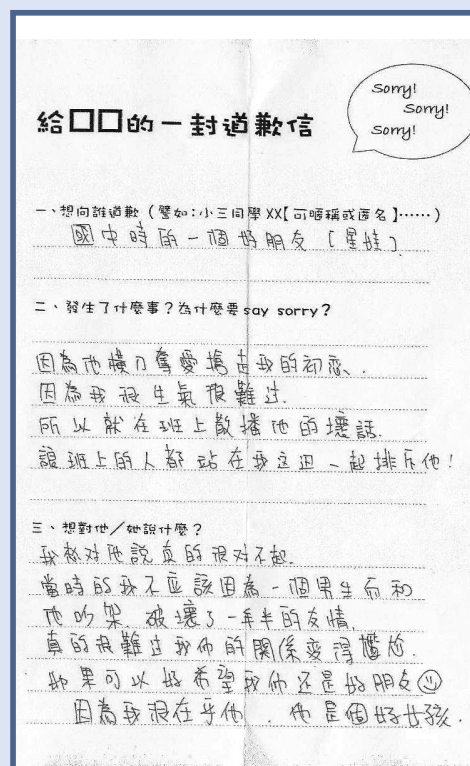 Sorry!
Sorry!
Sorry!
給□□的一封道歉信
一、想向誰道歉（譬如：小三同學XX【可暱稱或匿名】……）
國中時的一個好朋友〔星娃〕
二、發生了什麼事？為什麼要say sorry？
因為他橫刀奪愛搶走我的初戀、.
因為我很生氣很難过.
所以就在班上散播他的壞話.
讓班上的人都站在我这边一起排斥他！
三、想對他／她說什麼？
我想对他說真的很对不起.
當時的我不应該因為一個男生而和
他吵架.破壞了一年半的友情.
真的很難过我們的關係变得尷尬.
如果可以好希望我們还是好朋友☺
因為我很在乎他.他是個好女孩.